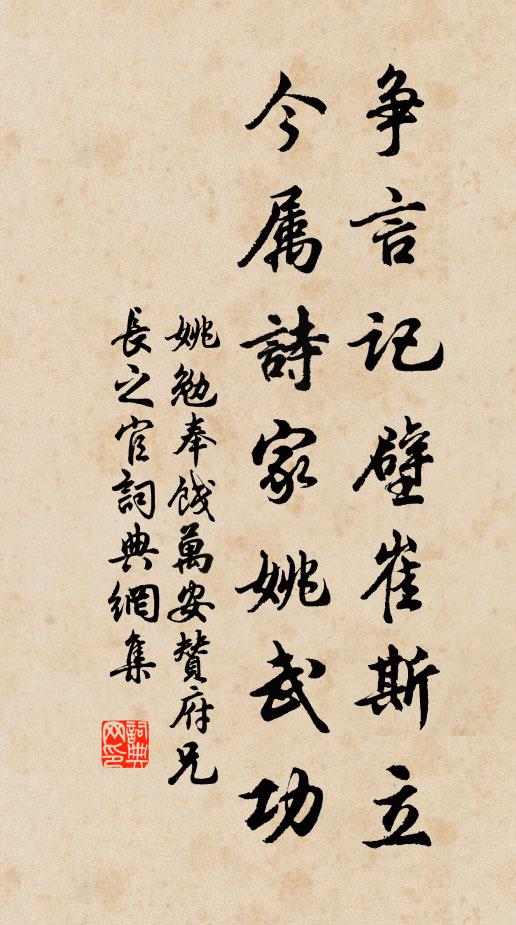 争言记壁崔斯立
今属詩家姚武功
姚勉奉餞萬安贊府兄
長之官詞典網集
詞典
网印